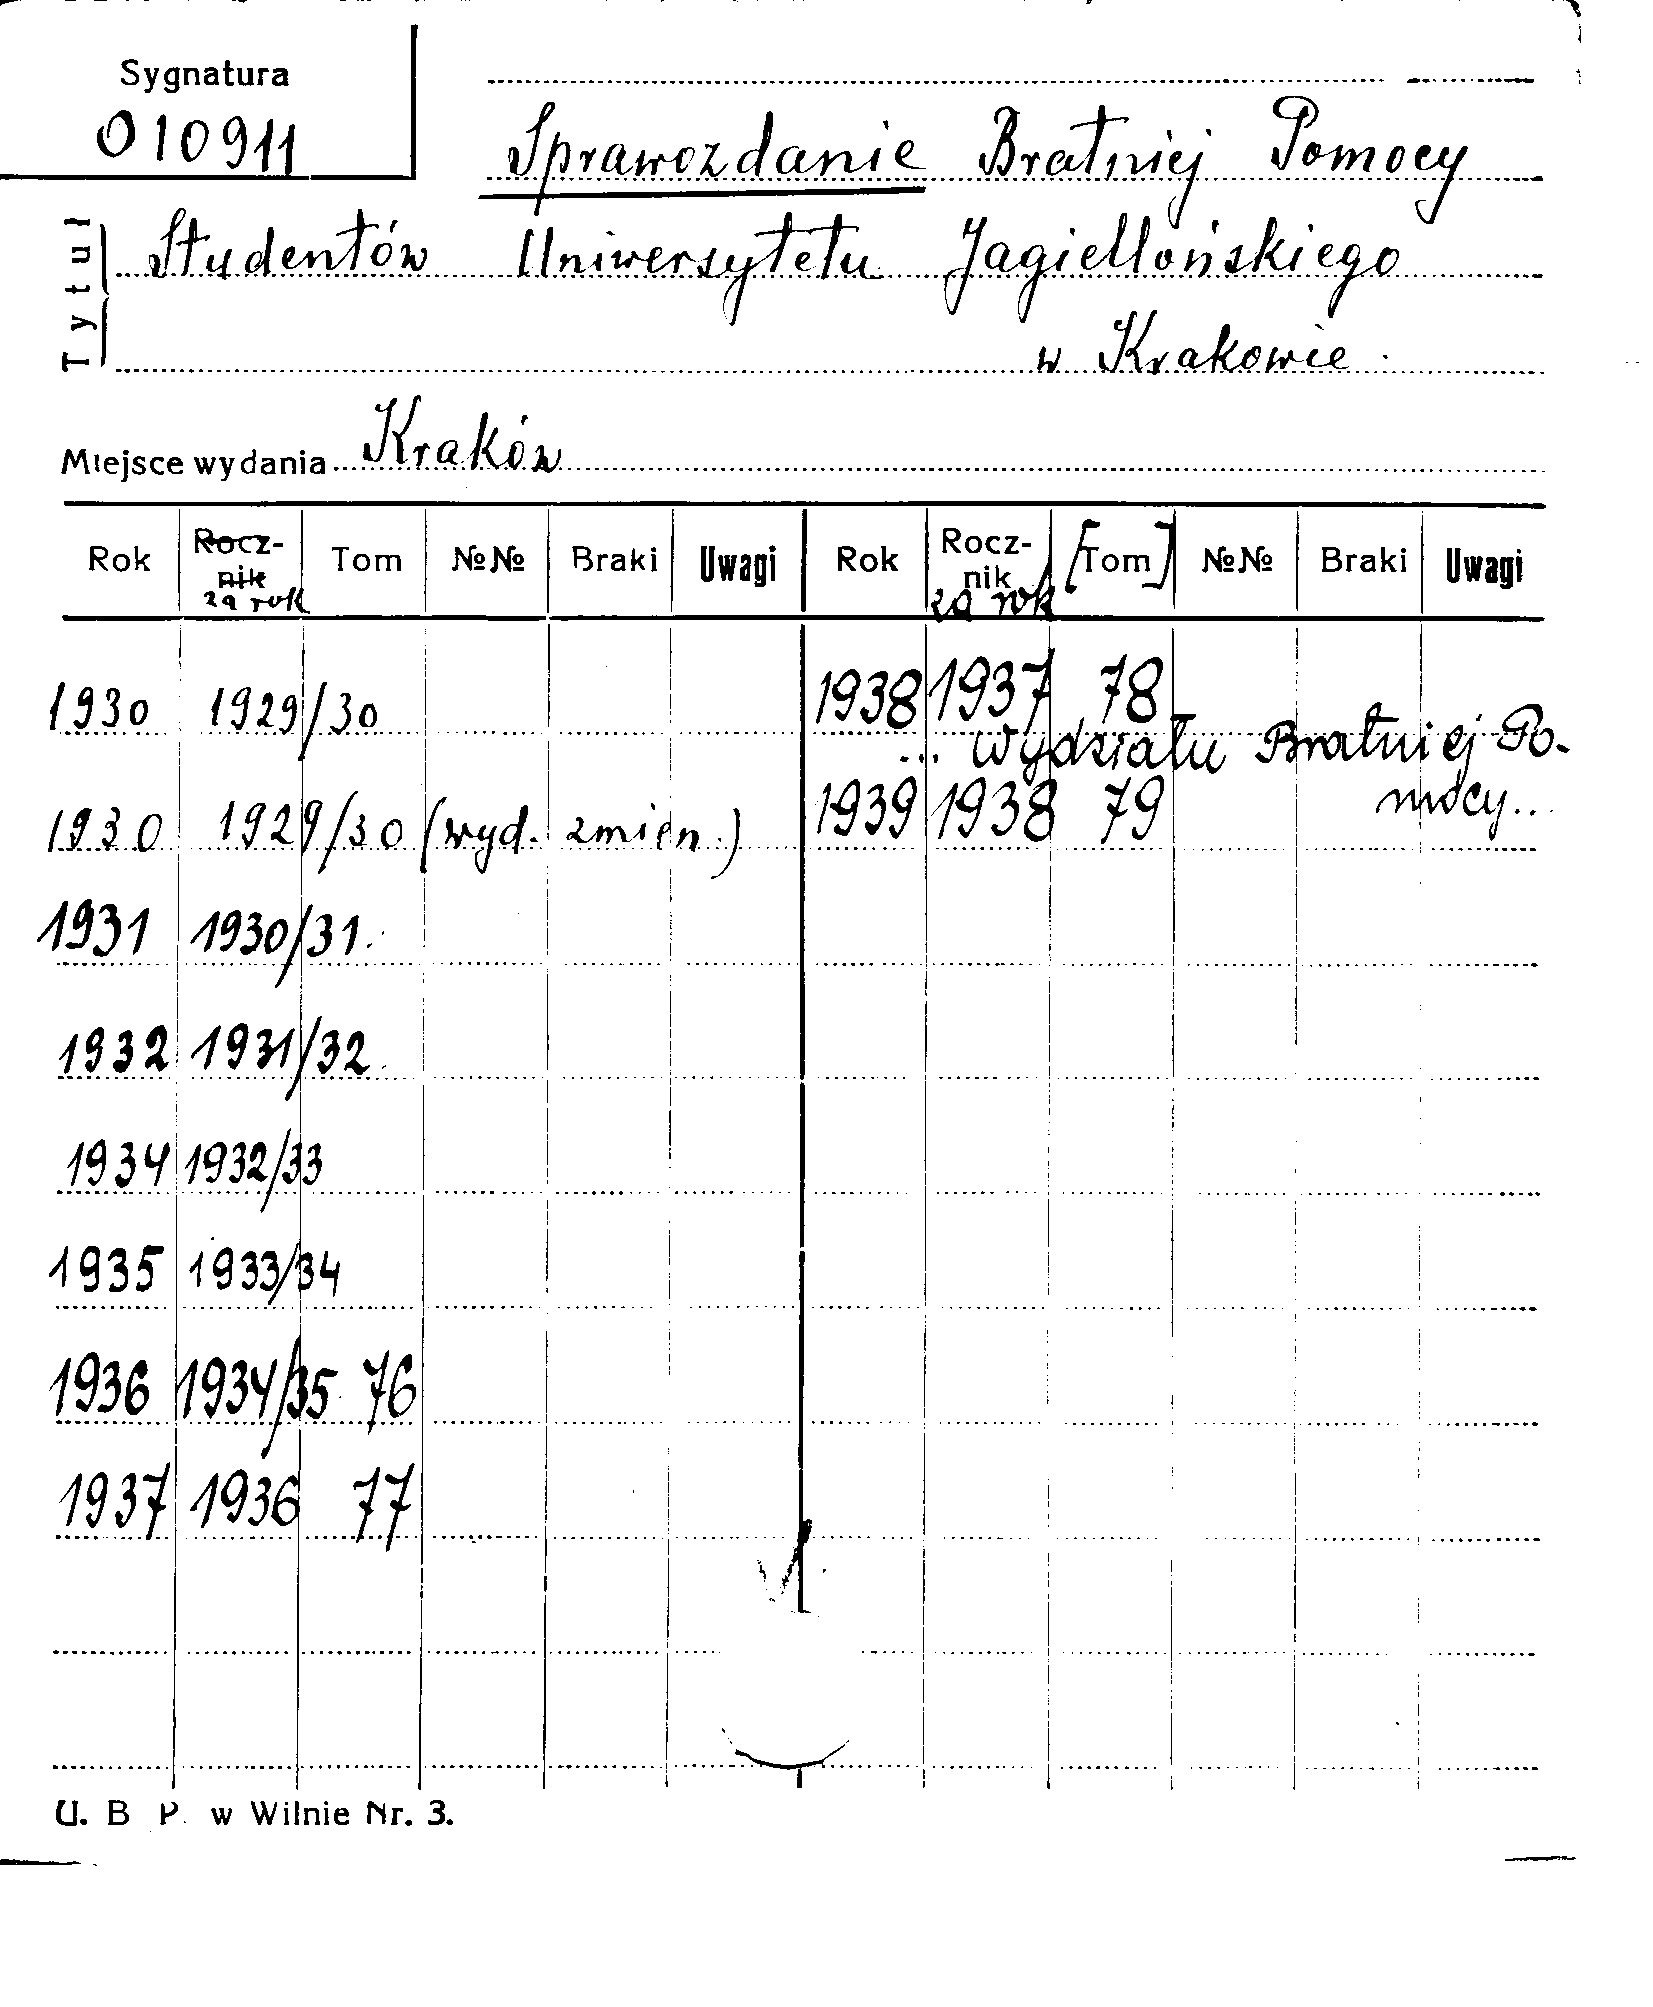 Sygnatura
010911
Sprawozdanie Bratniej Pomocy
Tytuł
Studentów Uniwersytetu Jagiellońskiego
w Krakowie.
Miejsce wydania Kraków
Rok Rocz-nik za rok Tom №№ Braki Uwagi Rok Rocz-nik za rok [Tom] №№ Braki Uwagi
1930 1929/30 1938 1937 78
... Wydziału Bratniej Po-
1930 1929/30 (wyd. zmien.) 1939 1938 79 mocy...
1931 1930/31.
1932 1931/32.
1934 1932/33
1935 1933/34
1936 1934/35 76
1937 1936 77
U. B P. w Wilnie Nr. 3.